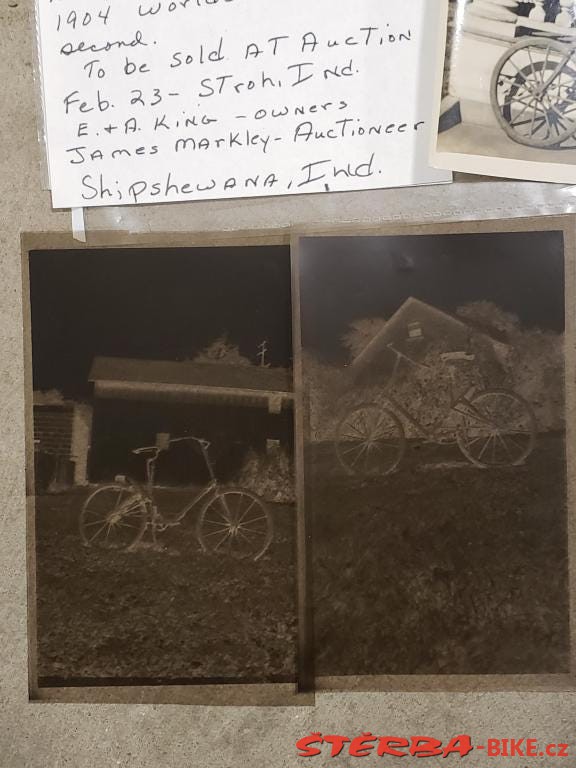 1904 World
second.
To be sold AT Auction
Feb. 23 - STroh, Ind.
E. + A. King - owners
JAmes MArkley - Auctioneer
ShipshewANA, Ind.
ŠTĚRBA-BIKE.cz